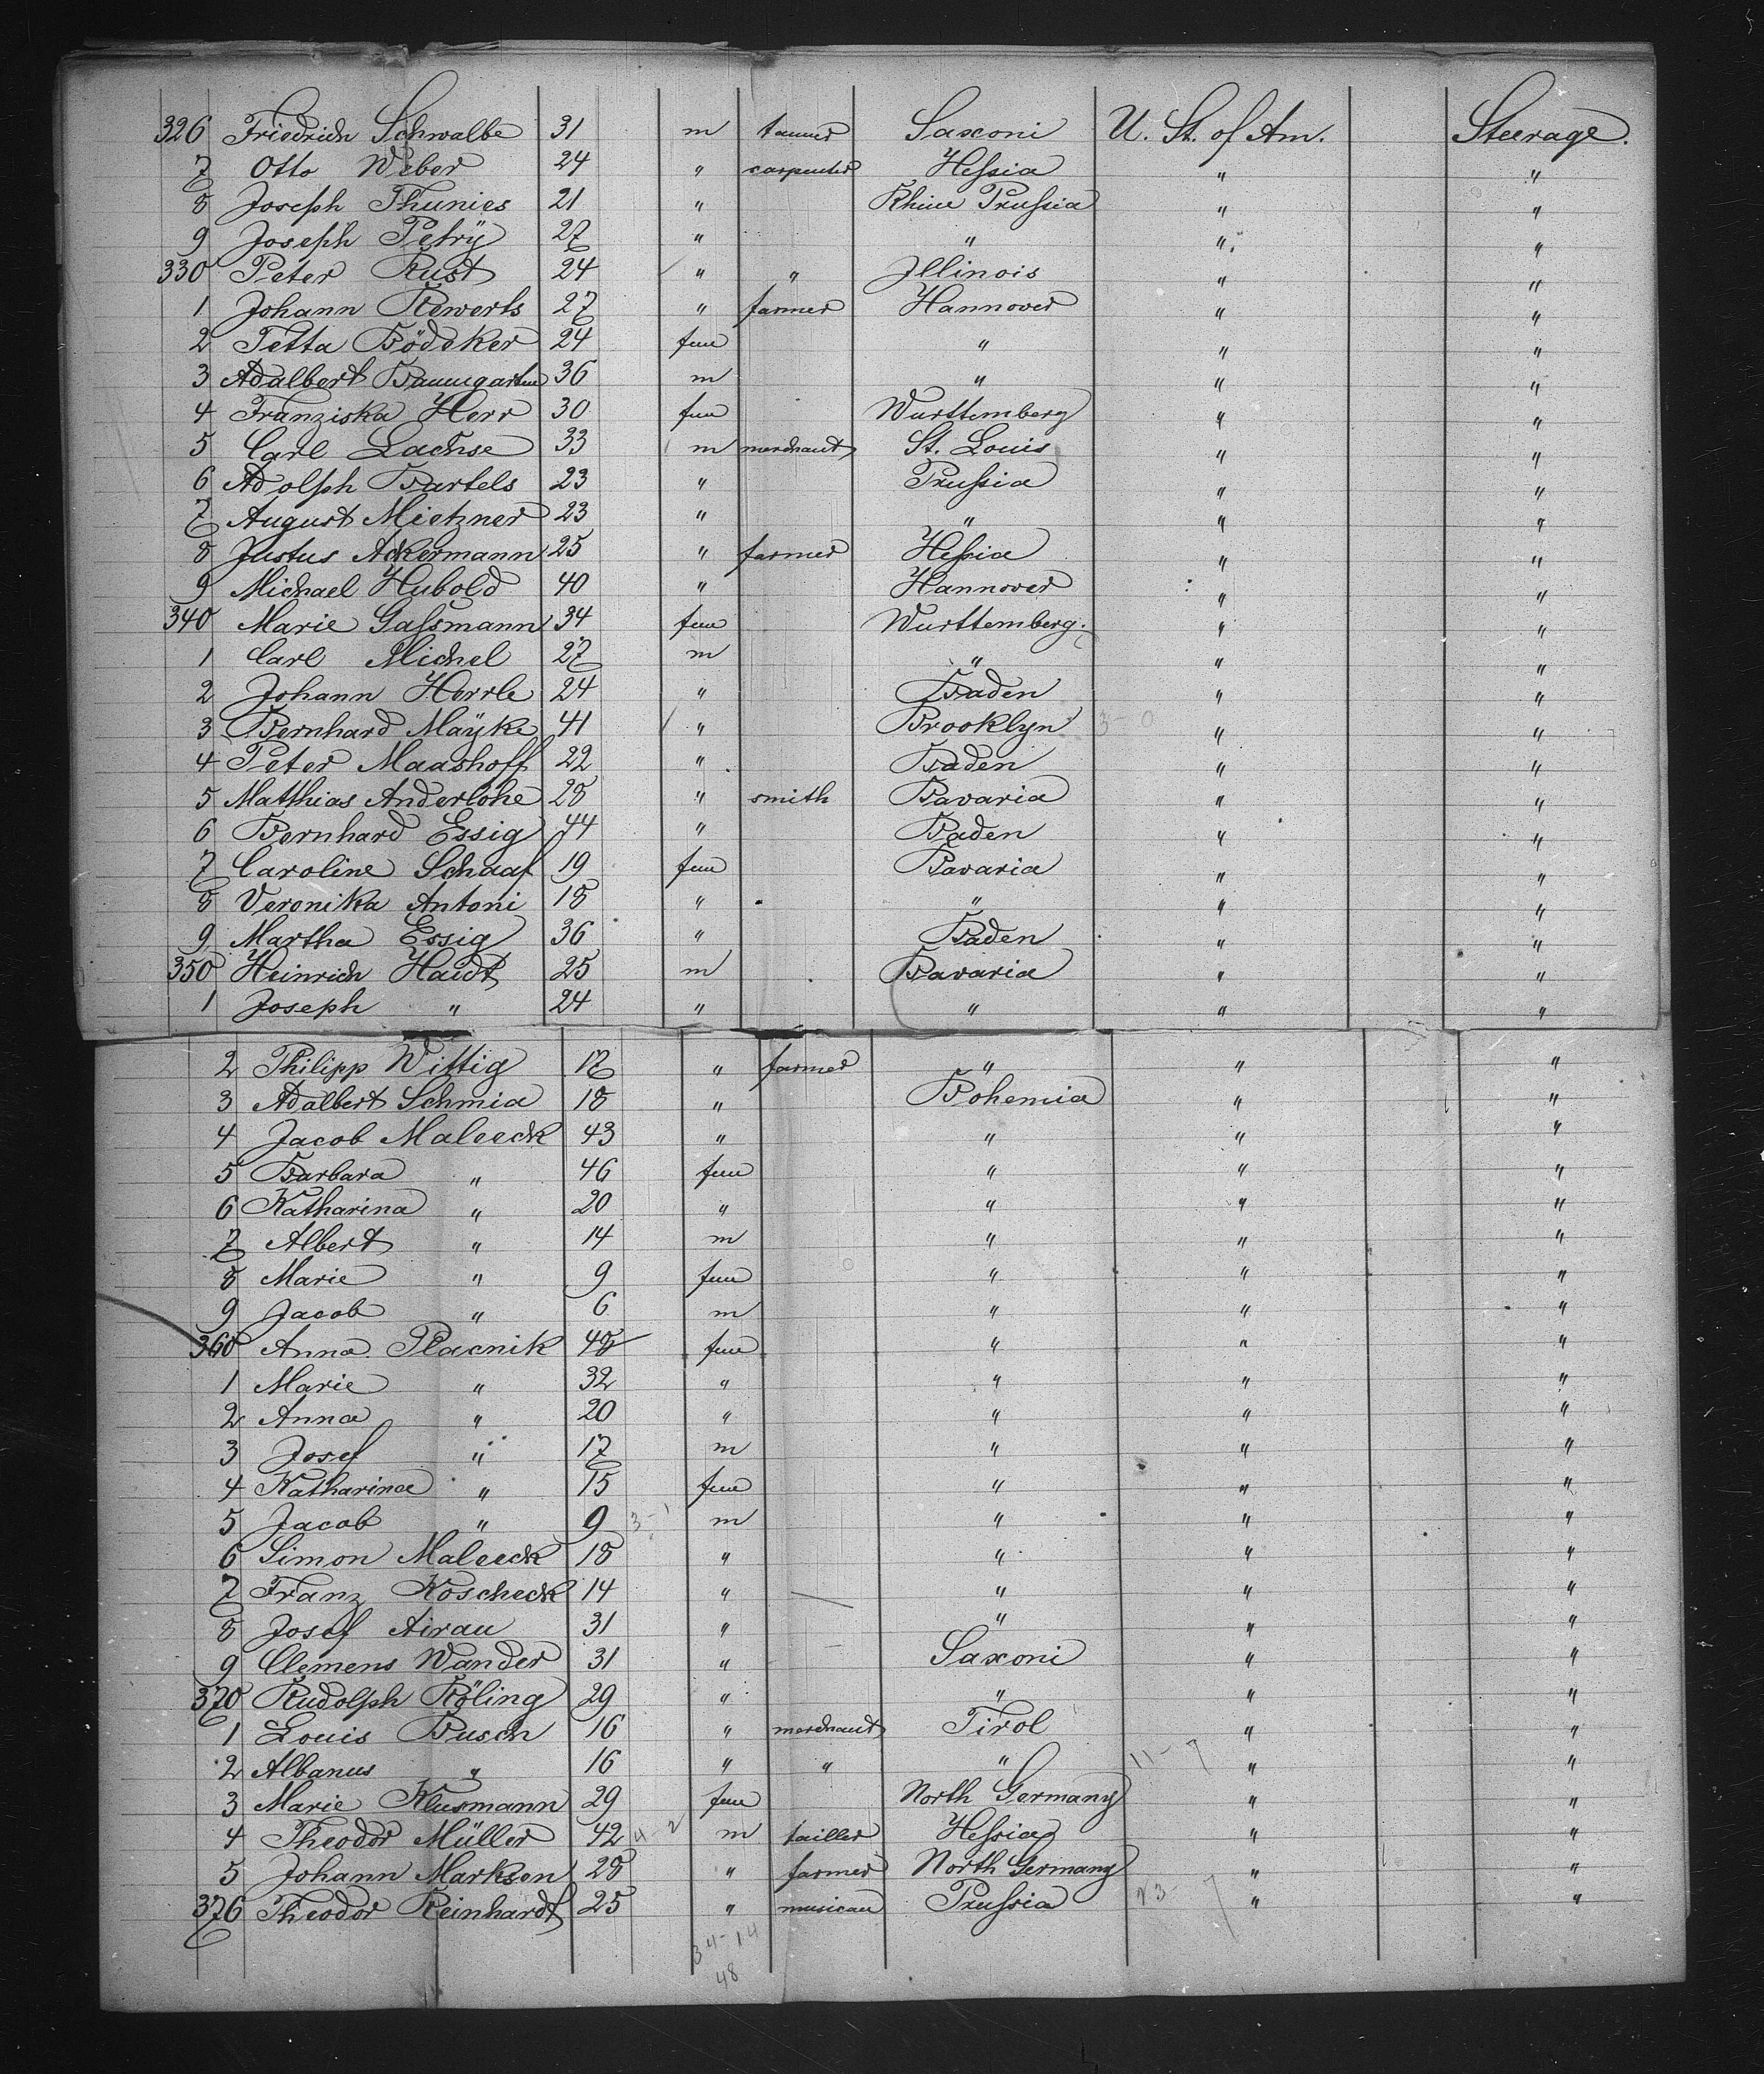 326 Friedrich Schwalbe 31 m tanner Saxoni U. St. of Am. Steerage.
7 Otto Weber 24 " carpenter Hessia " "
8 Joseph Thunies 21 " Rhine Prussia " "
9 Joseph Petrÿ 27 " " " "
330 Peter Rust 24 " " Illinois " "
1 Johann Rewerts 27 " farmer Hannover " "
2 Tetta Bödeker 24 fem " " "
3 Adalbert Baumgarten 36 m " " "
4 Franziska Herr 30 fem Wurttemberg " "
5 Carl Lachse 33 m merchant St. Louis " "
6 Adolph Bartels 23 " Prussia " "
7 August Mietzner 23 " " " "
8 Justus Ackermann 25 " farmer Hessia " "
9 Michael Hubold 40 " Hannover " "
340 Marie Gassmann 34 fem Wurttemberg. " "
1 Carl Michel 27 m " " "
2 Johann Herrle 24 " Baden " "
3 Bernhard Maÿke 41 " Brooklyn 3-0 " "
4 Peter Maashoff 22 " Baden " "
5 Matthias Anderlohe 28 " smith Bavaria " "
6 Bernhard Essig 44 " Baden " "
7 Caroline Schaaf 19 fem Bavaria " "
8 Veronika Antoni 18 " " " "
9 Martha Essig 36 " Baden " "
350 Heinrich Haidt 25 m Bavaria " "
1 Joseph " 24 " " " "
2 Philipp Wittig 17 " farmer " " "
3 Adalbert Schmia 18 " Bohemia " "
4 Jacob Maleeck 43 " " " "
5 Barbara " 46 fem " " "
6 Katharina " 20 " " " "
7 Albert " 14 m " " "
8 Marie " 9 fem " " "
9 Jacob " 6 m " " "
360 Anna Placnik 48 fem " " "
1 Marie " 32 " " " "
2 Anna " 20 " " " "
3 Josef " 17 m " " "
4 Katharina " 15 fem " " "
5 Jacob " 9 3-1 m " " "
6 Simon Maleeck 18 " " " "
7 Franz Koscheck 14 " " " "
8 Josef Airau 31 " " " "
9 Clemens Wander 31 " Saxoni " "
370 Rudolph Röling 29 " " " "
1 Louis Busch 16 " merchant Tirol " "
2 Albanus " 16 " " " 11-7 " "
3 Marie Klusmann 29 fem North Germany " "
4 Theodor Müller 42 4-2 m tailler Hessia " "
5 Johann Marksen 28 " farmer North Germany " "
376 Theodor Reinhardt 25 " musican Prussia 23-7 " "
34-14
48